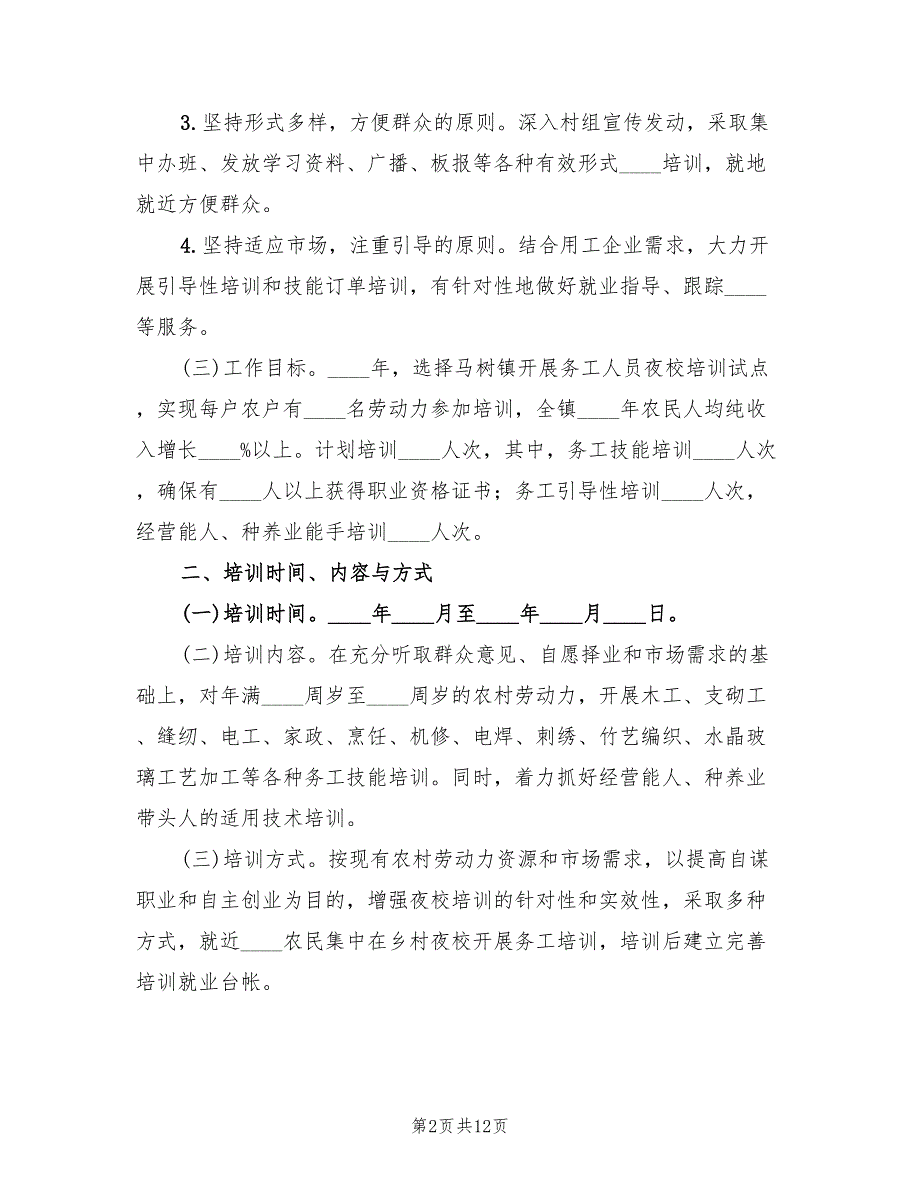 3. 坚持形式多样，方便群众的原则。深入村组宣传发动，采取集
中办班、发放学习资料、广播、板报等各种有效形式____培训，就地
就近方便群众。
4. 坚持适应市场，注重引导的原则。结合用工企业需求，大力开
展引导性培训和技能订单培训，有针对性地做好就业指导、跟踪____
等服务。
(三)工作目标。____年，选择马树镇开展务工人员夜校培训试点
，实现每户农户有____名劳动力参加培训，全镇____年农民人均纯收
入增长____%以上。计划培训____人次，其中，务工技能培训____人次
，确保有____人以上获得职业资格证书；务工引导性培训____人次，
经营能人、种养业能手培训____人次。
二、培训时间、内容与方式
(一)培训时间。____年____月至____年____月____日。
(二)培训内容。在充分听取群众意见、自愿择业和市场需求的基
础上，对年满____周岁至____周岁的农村劳动力，开展木工、支砌工
、缝纫、电工、家政、烹饪、机修、电焊、刺绣、竹艺编织、水晶玻
璃工艺加工等各种务工技能培训。同时，着力抓好经营能人、种养业
带头人的适用技术培训。
(三)培训方式。按现有农村劳动力资源和市场需求，以提高自谋
职业和自主创业为目的，增强夜校培训的针对性和实效性，采取多种
方式，就近____农民集中在乡村夜校开展务工培训，培训后建立完善
培训就业台帐。
第2页共12页